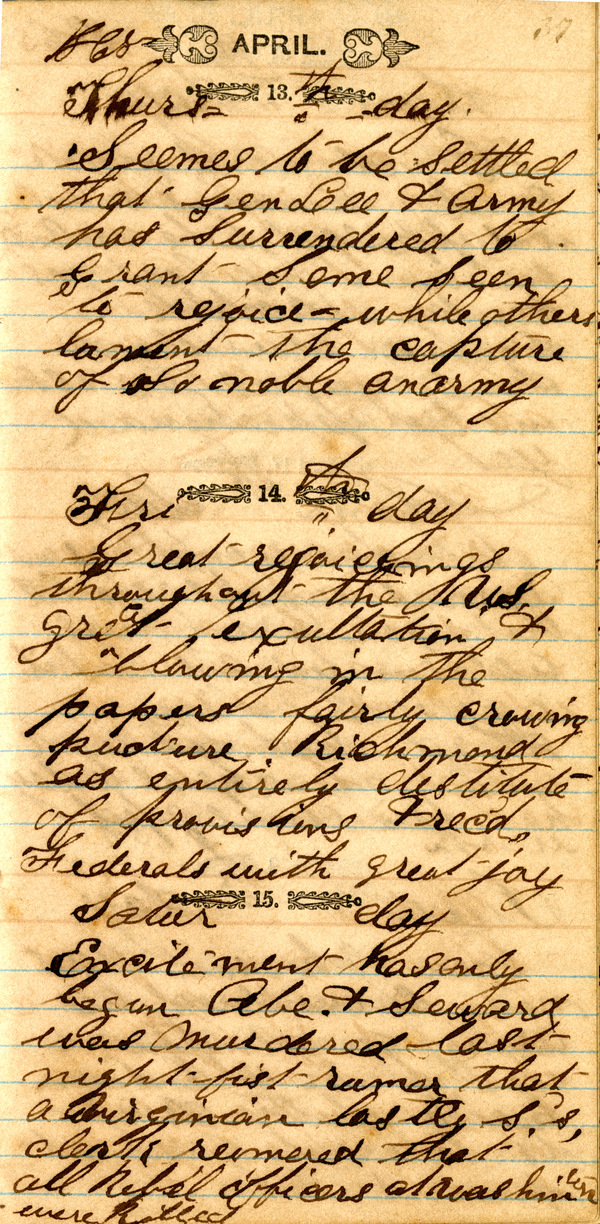 APRIL.
37
13.
Thurs- th -day.
Seemes to be settled
that Gen Lee & army
has surrendered to
Grant some seen
to rejoice - while others
lament the capture
of so noble an army
14.
Fri th day
Great rejoiceings
throughout the U.S.
great exultation &
blowing in the
papers fairly crowing
picture Richmond
as entirely destitute
of provisions & rec'd,
Federals with great joy
15.
Satur day
Excitement has only
begun Abe. & Seward
was murdered last
night fist rumor that
a Virginian lastly S's,
clerk rumored that
all Rebel officers at Washinton
were killed